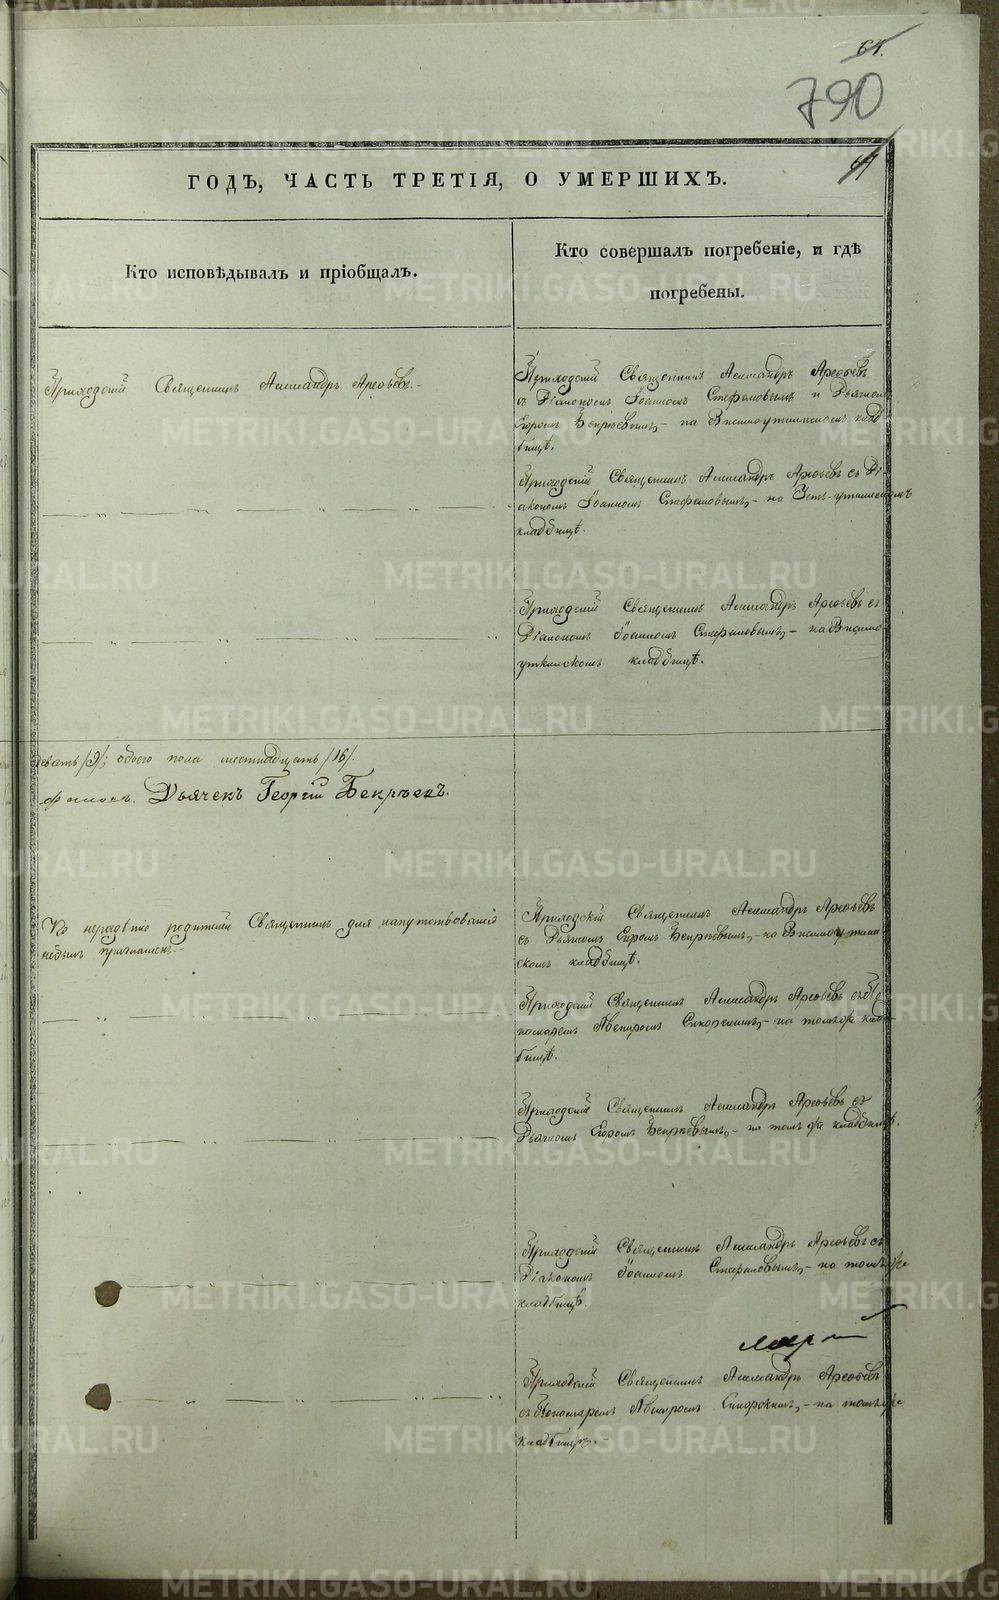 61.
790
61
ГОДЪ, ЧАСТЬ ТРЕТІЯ, О УМЕРШИХЪ.
Кто исповѣдывалъ и пріобщалъ.
Кто совершалъ погребеніе, и гдѣ
погребены.
Приходскій Священникъ Александръ Арефьевъ.-
Приходскій Священникъ Александръ Арефьевъ
съ Діакономъ Іоанномъ Стефановымъ и Дьячкомъ
Егоромъ Бекрѣевымъ,- на Висимоуткинскомъ клад-
бищѣ.
Приходскій Священникъ Александръ Арефьевъ съ Ді-
акономъ Іоанномъ Стефановымъ,- на Усть-уткинскомъ
кладбищѣ.
Приходскій Священникъ Александръ Арефьевъ съ
Діакономъ Іоанномъ Стефановымъ,- на Висимо
уткинскомъ кладбищѣ.
девять /9/; обоего пола шестнадцать /16/.
Дьячекъ Георгій Бекрѣевъ.
По нерадѣнію родителей Священникъ для напутствованія
небылъ приглашенъ.-
Приходскій Священникъ Александръ Арефьевъ
съ Дьячкомъ Егоромъ Бекрѣевымъ,- на Висимоуткин-
скомъ кладбищѣ.
Приходскій Священникъ Александръ Арефьевъ съ По-
номаремъ Авениромъ Сикорскимъ,- на томъ же клад-
бищѣ.
Приходскій Священникъ Александръ Арефьевъ съ
Дьячкомъ Егоромъ Бекрѣевымъ,- на томъ же кладбищѣ.
Приходскій Священникъ Александръ Арефьевъ съ
Діакономъ Іоанномъ Стефановымъ,- на томъ же
кладбищѣ.
Приходскій Священникъ Александръ Арефьевъ
съ Пономаремъ Авениромъ Сикорскимъ,- на томъ же
кладбищѣ.-
METRIKI.GASO-URAL.RU